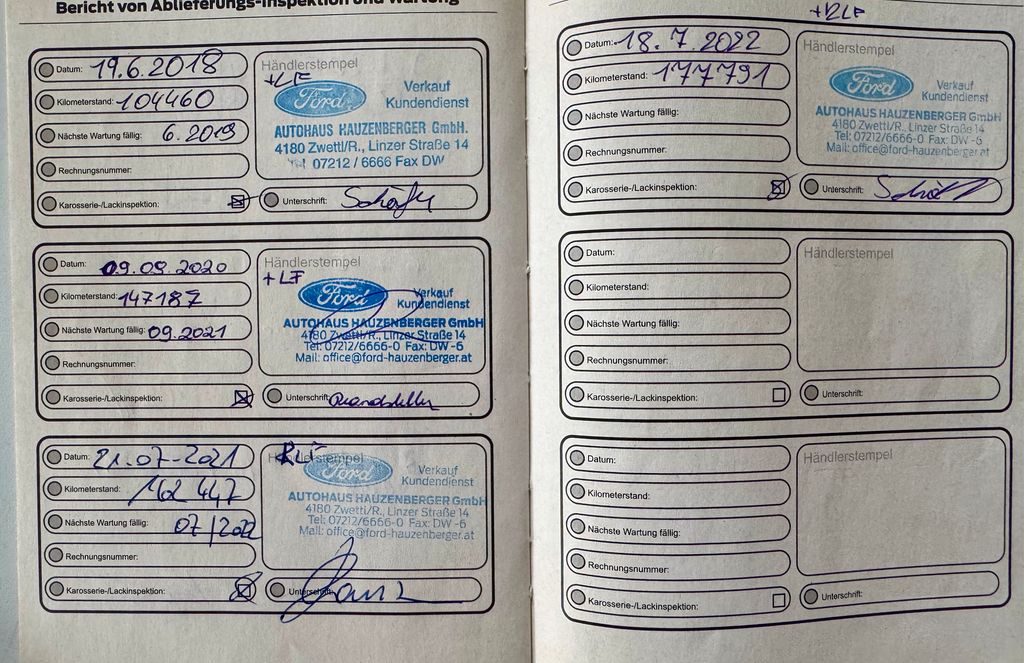 Bericht von Ablieferungs-Inspektion und Wartung
Datum: 19.6.2018
Kilometerstand: 104460
Nächste Wartung fällig: 6.2019
Rechnungsnummer:
Karosserie-/Lackinspektion:
Händlerstempel
+LF
Ford
Verkauf
Kundendienst
AUTOHAUS HAUZENBERGER GmbH.
4180 Zwettl/R., Linzer Straße 14
Tel 07212 / 6666 Fax DW
Unterschrift:
Datum: 09.09.2020
Kilometerstand: 147187
Nächste Wartung fällig: 09.2021
Rechnungsnummer:
Karosserie-/Lackinspektion:
Händlerstempel
+LF
Ford
Verkauf
Kundendienst
AUTOHAUS HAUZENBERGER GmbH
4180 Zwettl/R., Linzer Straße 14
Tel: 07212/6666-0 Fax: DW -6
Mail: office@ford-hauzenberger.at
Unterschrift:
Datum: 21.07-2021
Kilometerstand: 162447
Nächste Wartung fällig: 07/2022
Rechnungsnummer:
Karosserie-/Lackinspektion:
Händlerstempel
Ford
Verkauf
Kundendienst
AUTOHAUS HAUZENBERGER GmbH
4180 Zwettl/R., Linzer Straße 14
Tel: 07212/6666-0 Fax: DW -6
Mail: office@ford-hauzenberger.at
Unterschrift:
Datum: 18.7.2022
Kilometerstand: 177791
Nächste Wartung fällig:
Rechnungsnummer:
Karosserie-/Lackinspektion:
Händlerstempel
Ford
Verkauf
Kundendienst
AUTOHAUS HAUZENBERGER GmbH
4180 Zwettl/R., Linzer Straße 14
Tel: 07212/6666-0 Fax: DW -6
Mail: office@ford-hauzenberger.at
Unterschrift:
Datum:
Kilometerstand:
Nächste Wartung fällig:
Rechnungsnummer:
Karosserie-/Lackinspektion:
Händlerstempel
Unterschrift:
Datum:
Kilometerstand:
Nächste Wartung fällig:
Rechnungsnummer:
Karosserie-/Lackinspektion:
Händlerstempel
Unterschrift: